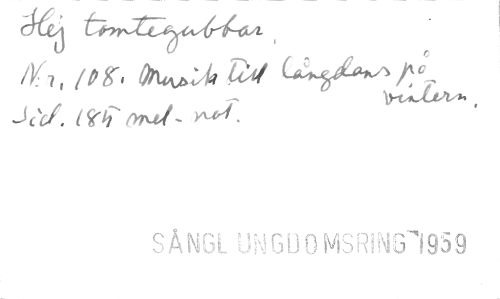 Hej tomtegubbar.
Nr. 108. Musik till långdans på
vintern.
Sid. 185 mel-not.
SÅNGL UNGDOMSRING 1959